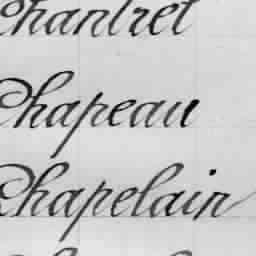 Chantret
Chapeau
Chapelain